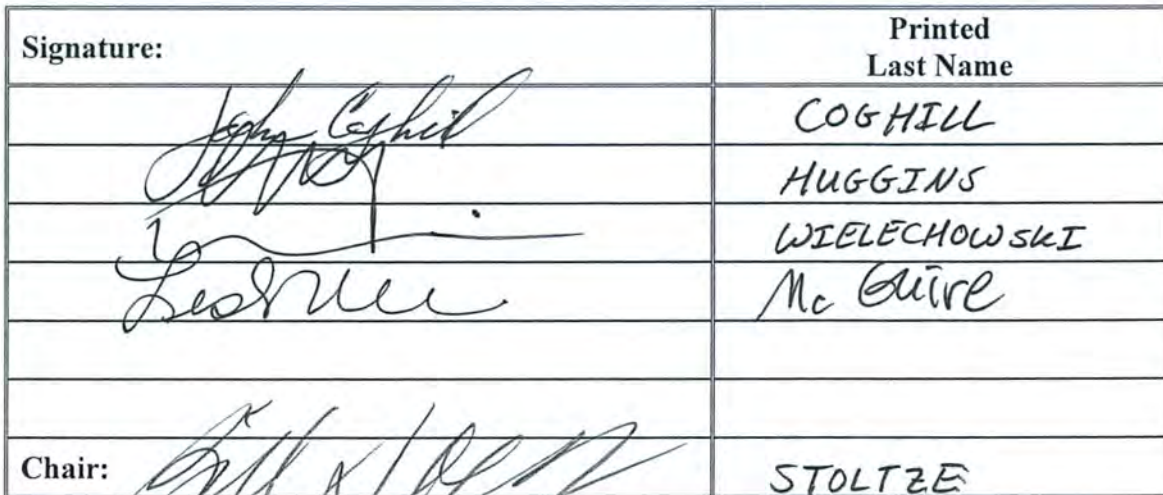 Signature:
Printed
Last Name
John Coghill
COGHILL
HUGGINS
WIELECHOWSKI
Mc Guire
Chair:
STOLTZE